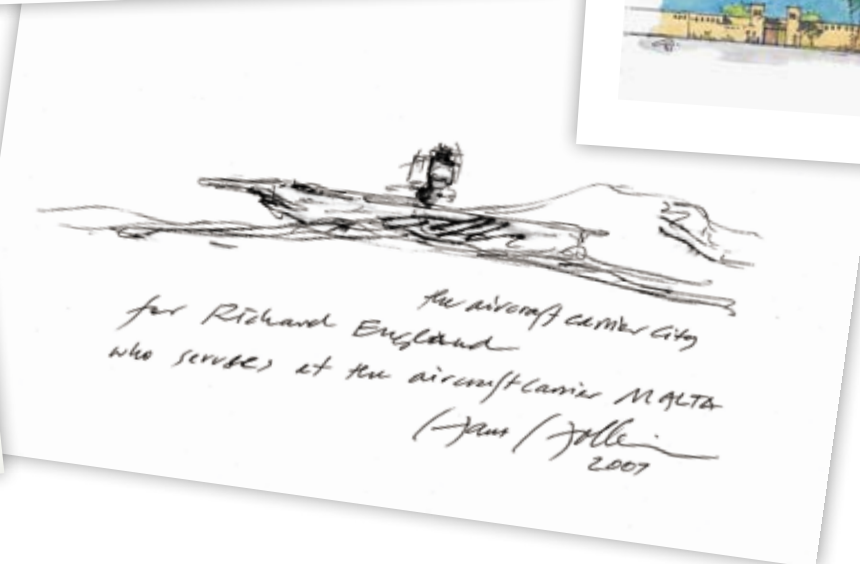 the aircraft carrier city
for Richard England
who serves at the aircraft carrier MALTA
Hans Hollein
2007